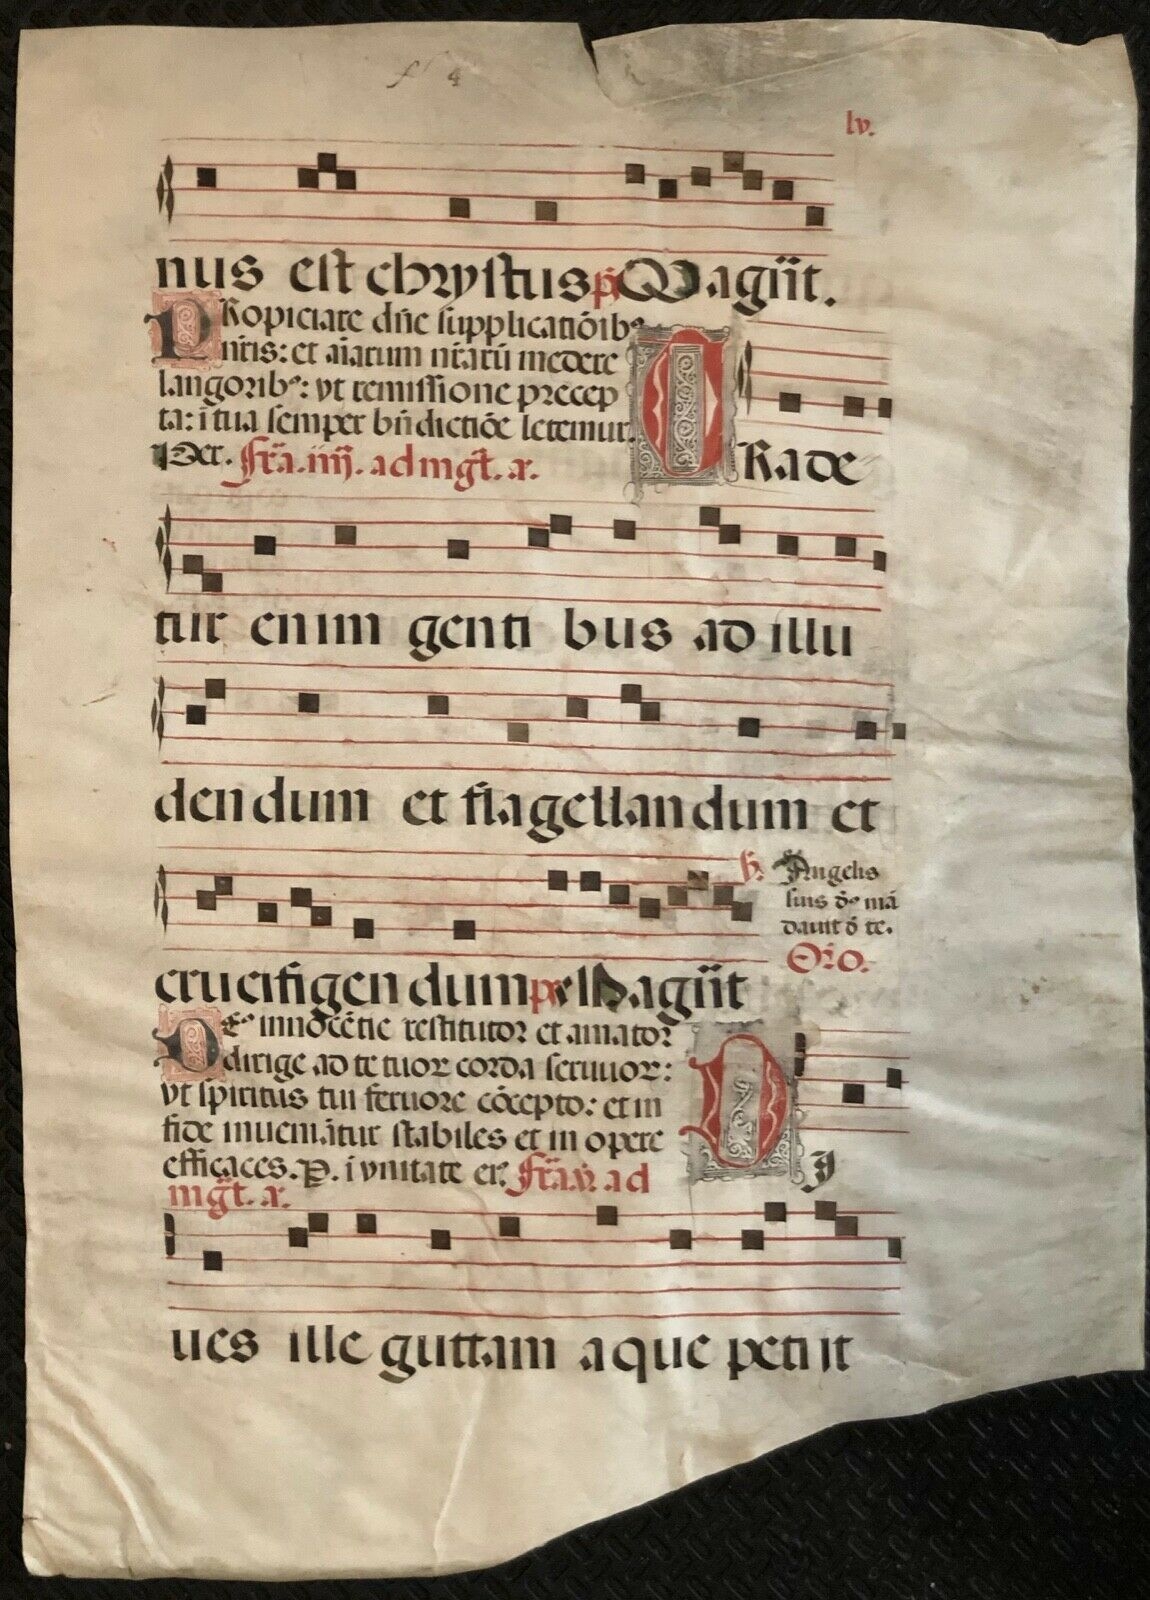 f 4
lv.
nus est chrystus ps Magñt.
PRopiciare dñe supplicatiōib⁹
nr̄is: et aīarum nr̄arū medere
langorib⁹: vt remissione precep
ta: ī tua semper bñdictiōe letemur.
Per. Fr̄a. iiij. ad mg̃t. a.
TRade
tur enim genti bus ad illu
den dum et flagellan dum et
crucifigen dum ps Magñt
℣. Angelis
suis d⁹ mā
dauit d̄ te.
Oro.
DE⁹ innocētie restitutor et amator
dirige ad te tuor corda seruuor:
vt spiritus tui feruore cōcepto: et in
fide inueniātur stabiles et in opere
efficaces. P. ī vnitate ei⁹. Fr̄a. v. ad
mg̃t. a.
DI
ues ille guttam aque petiit